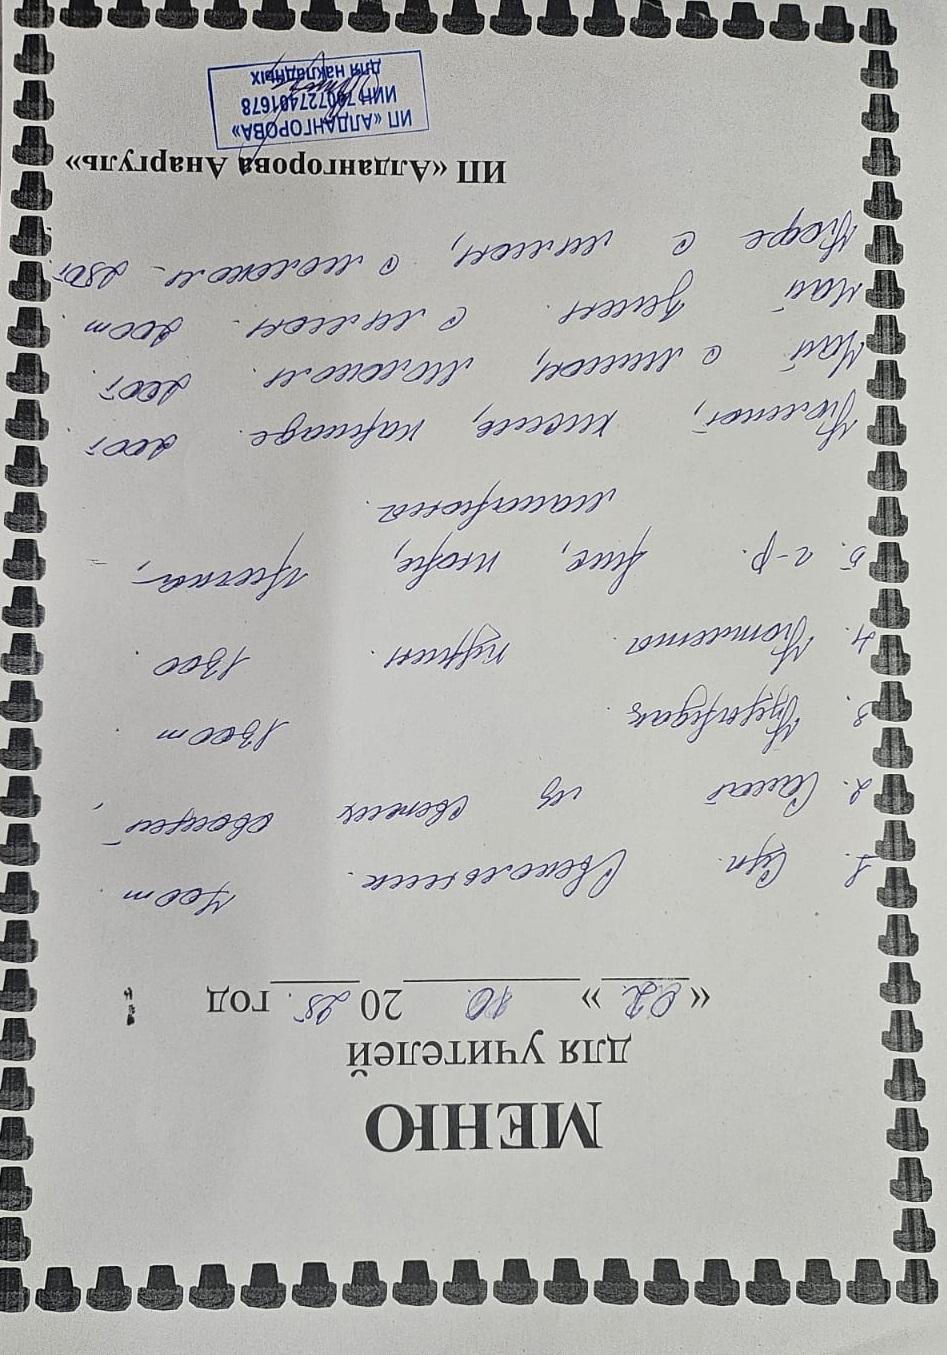 МЕНЮ
для учителей
«02» 10. 2025. год
1. Суп Свекольник. 400т
2. Салат из свежих овощей,
3. Куырдак. 1300т
4. Котлета куриная. 1300
5. г-р. рис, пюре, гречка,
макароны.
Компот, кисель, каркаде. 200т
Чай с молоком. 200т
Чай с лимоном. 200т
Кофе с молоком. 250т
ИП «Алдангорова Анаргуль»
ИП «АЛДАНГОРОВА»
ИИН 790727401678
для накладных